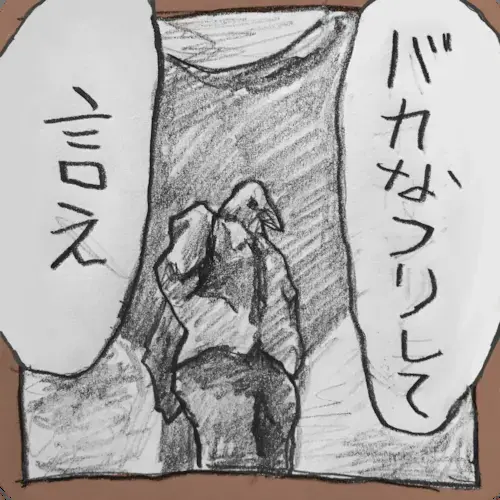 バカなフリして
言え